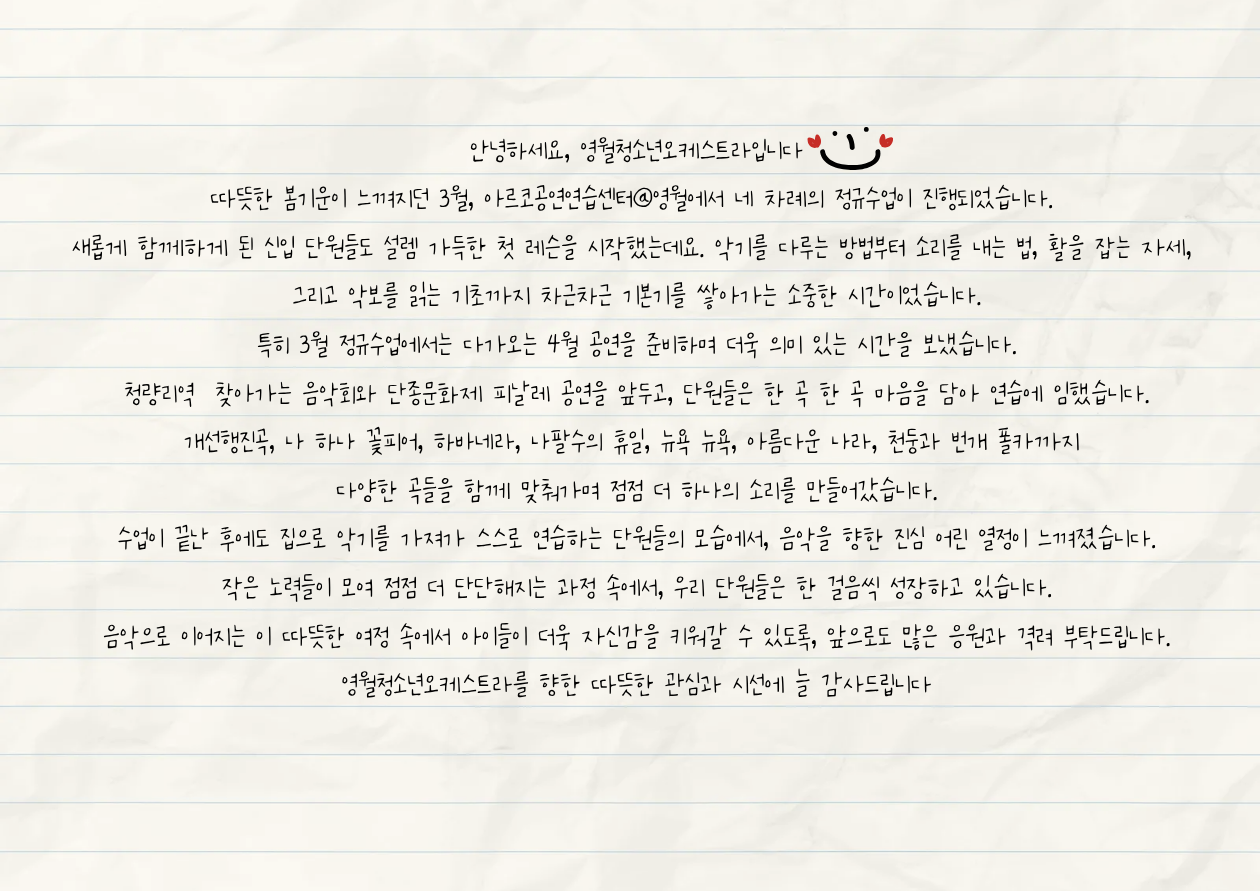 안녕하세요, 영월청소년오케스트라입니다
따뜻한 봄기운이 느껴지던 3월, 아르코공연연습센터@영월에서 네 차례의 정규수업이 진행되었습니다.
새롭게 함께하게 된 신입 단원들도 설렘 가득한 첫 레슨을 시작했는데요. 악기를 다루는 방법부터 소리를 내는 법, 활을 잡는 자세,
그리고 악보를 읽는 기초까지 차근차근 기본기를 쌓아가는 소중한 시간이었습니다.
특히 3월 정규수업에서는 다가오는 4월 공연을 준비하며 더욱 의미 있는 시간을 보냈습니다.
청량리역 찾아가는 음악회와 단종문화제 피날레 공연을 앞두고, 단원들은 한 곡 한 곡 마음을 담아 연습에 임했습니다.
개선행진곡, 나 하나 꽃피어, 하바네라, 나팔수의 휴일, 뉴욕 뉴욕, 아름다운 나라, 천둥과 번개 폴카까지
다양한 곡들을 함께 맞춰가며 점점 더 하나의 소리를 만들어갔습니다.
수업이 끝난 후에도 집으로 악기를 가져가 스스로 연습하는 단원들의 모습에서, 음악을 향한 진심 어린 열정이 느껴졌습니다.
작은 노력들이 모여 점점 더 단단해지는 과정 속에서, 우리 단원들은 한 걸음씩 성장하고 있습니다.
음악으로 이어지는 이 따뜻한 여정 속에서 아이들이 더욱 자신감을 키워갈 수 있도록, 앞으로도 많은 응원과 격려 부탁드립니다.
영월청소년오케스트라를 향한 따뜻한 관심과 시선에 늘 감사드립니다